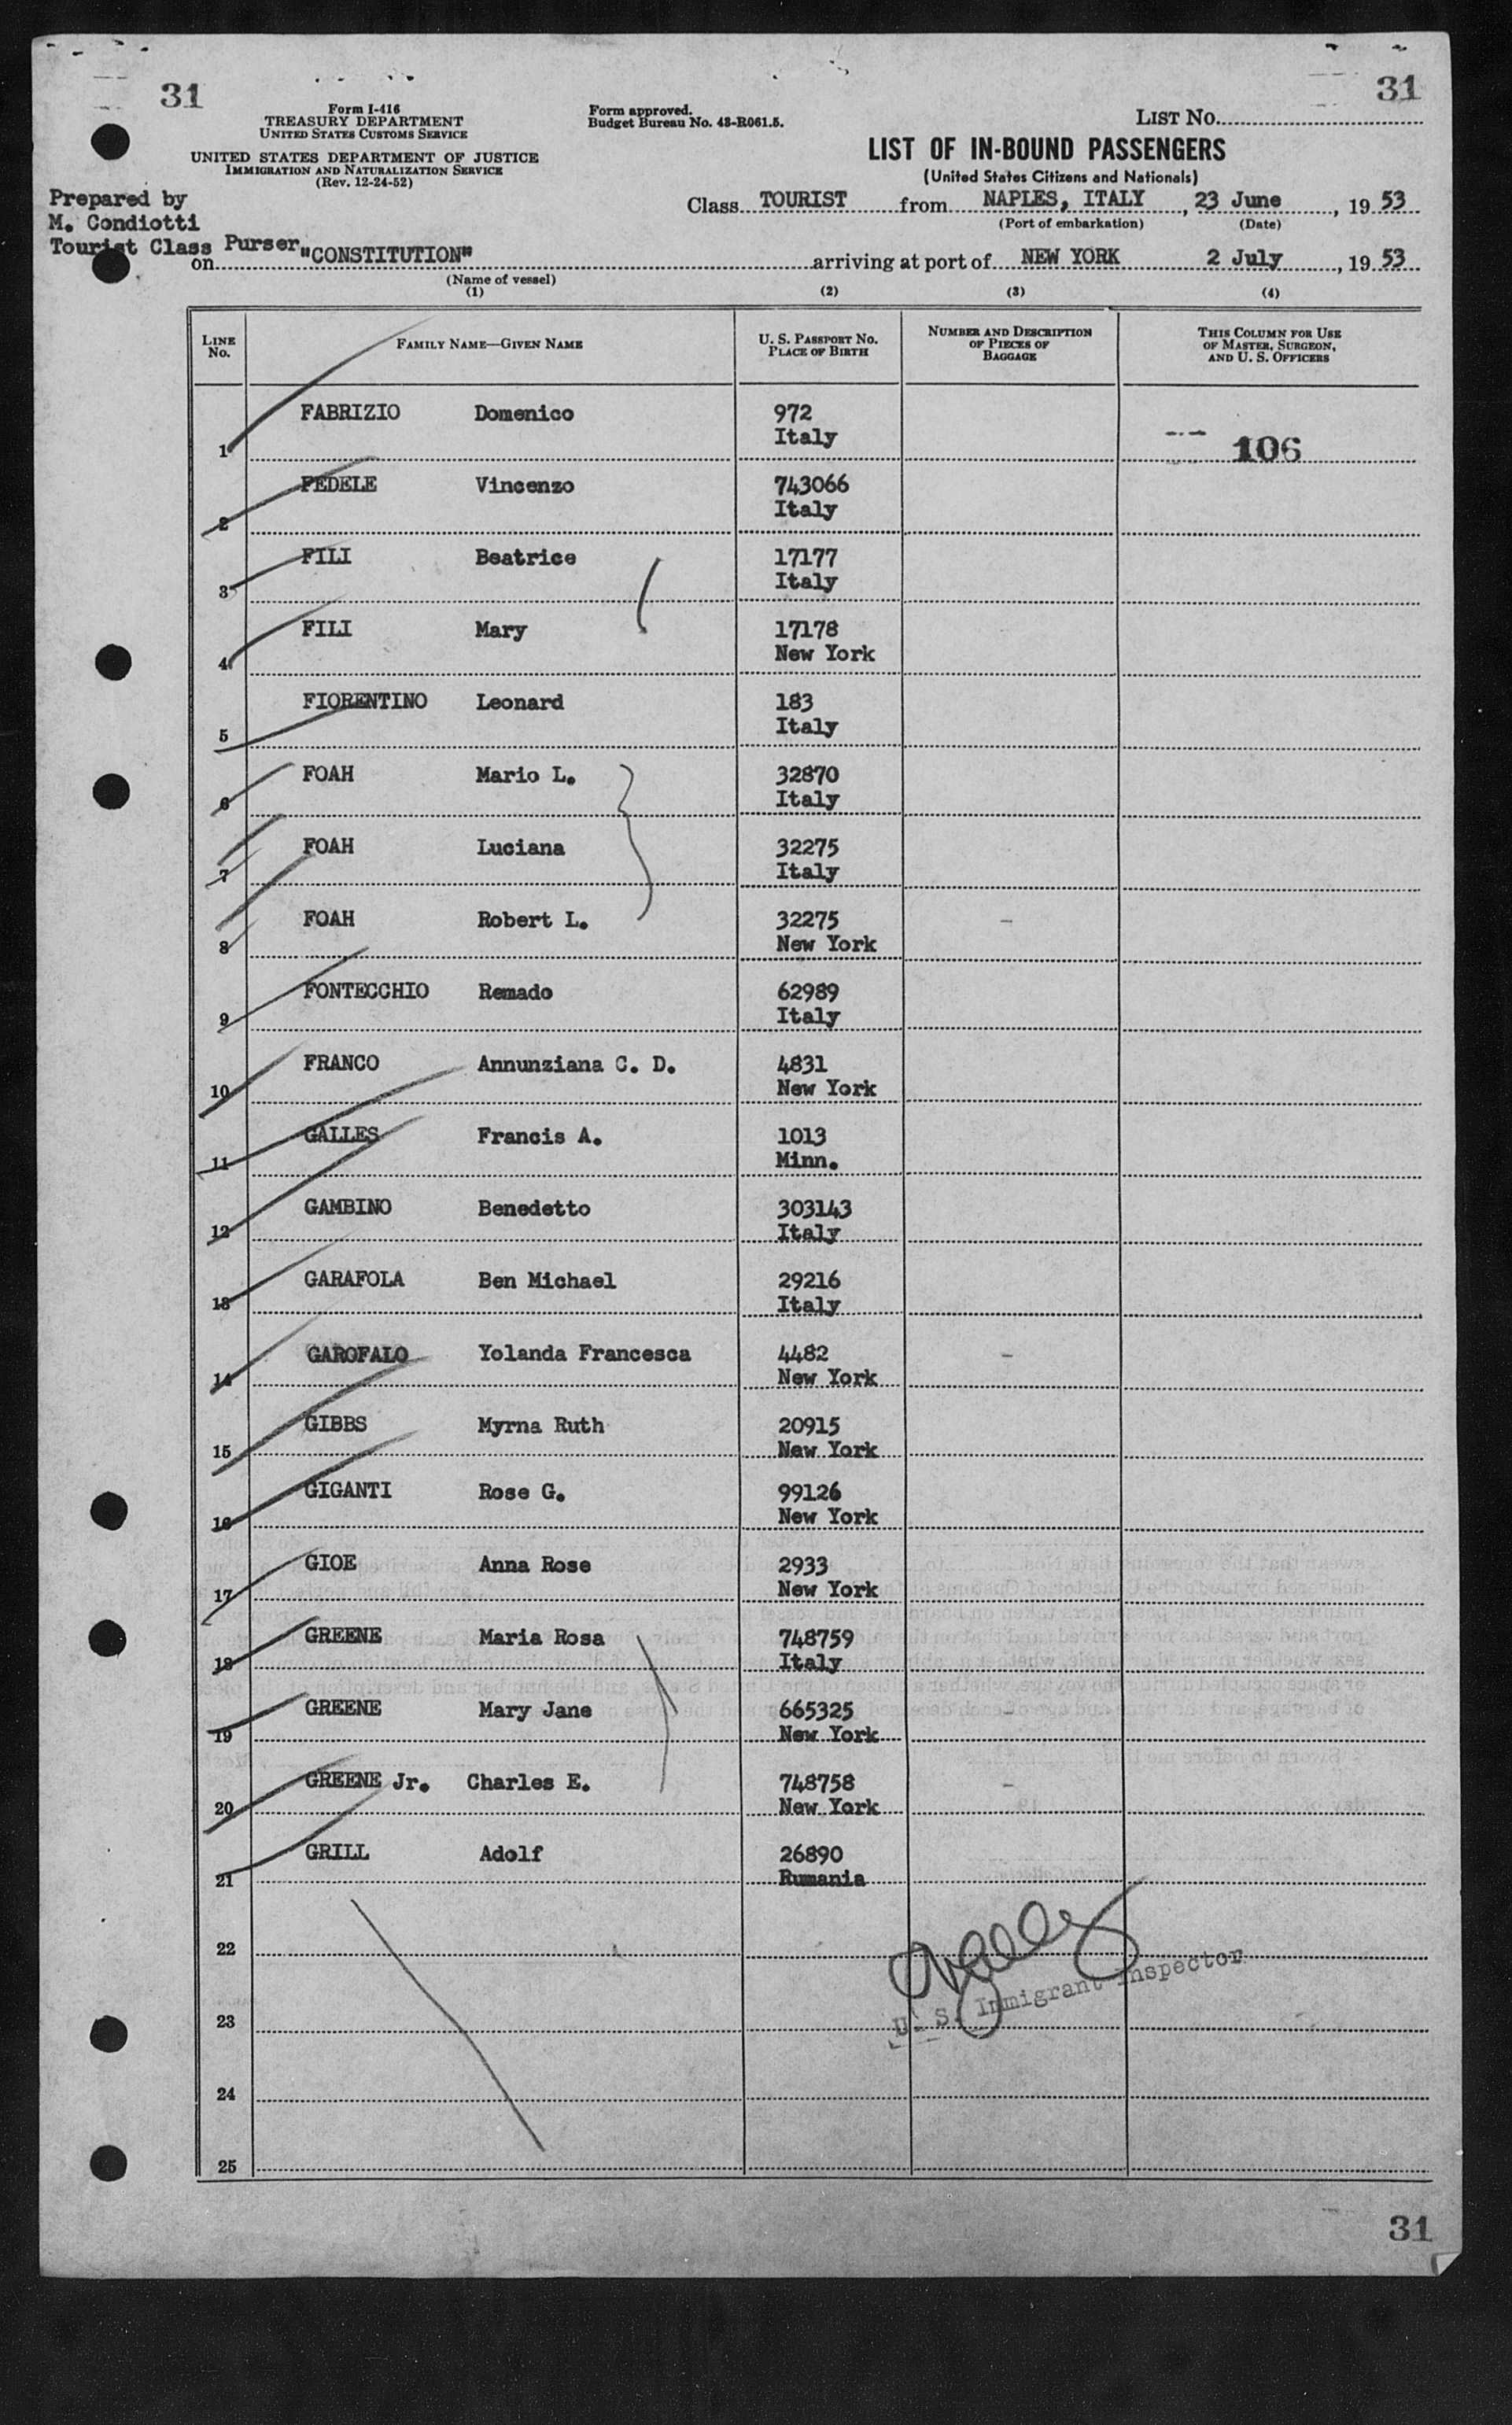 31
31
Form I-416
TREASURY DEPARTMENT
UNITED STATES CUSTOMS SERVICE
UNITED STATES DEPARTMENT OF JUSTICE
IMMIGRATION AND NATURALIZATION SERVICE
(Rev. 12-24-52)
Form approved.
Budget Bureau No. 43-R061.5.
LIST NO.
LIST OF IN-BOUND PASSENGERS
(United States Citizens and Nationals)
Prepared by
M. Condiotti
Tourist Class Purser
Class TOURIST from NAPLES, ITALY, 23 June, 19 53
(Port of embarkation) (Date)
on "CONSTITUTION" arriving at port of NEW YORK 2 July, 19 53
(Name of vessel)
(1) (2) (3) (4)
LINE NO. FAMILY NAME—GIVEN NAME U. S. PASSPORT NO. PLACE OF BIRTH NUMBER AND DESCRIPTION OF PIECES OF BAGGAGE THIS COLUMN FOR USE OF MASTER, SURGEON, AND U. S. OFFICERS
1 FABRIZIO Domenico 972
Italy
106
2 FEDELE Vincenzo 743066
Italy
3 FILI Beatrice 17177
Italy
4 FILI Mary 17178
New York
5 FIORENTINO Leonard 183
Italy
6 FOAH Mario L. 32870
Italy
7 FOAH Luciana 32275
Italy
8 FOAH Robert L. 32275
New York
9 FONTECCHIO Remado 62989
Italy
10 FRANCO Annunziana C. D. 4831
New York
11 GALLES Francis A. 1013
Minn.
12 GAMBINO Benedetto 303143
Italy
13 GARAFOLA Ben Michael 29216
Italy
14 GAROFALO Yolanda Francesca 4482
New York
15 GIBBS Myrna Ruth 20915
New York
16 GIGANTI Rose G. 99126
New York
17 GIOE Anna Rose 2933
New York
18 GREENE Maria Rosa 748759
Italy
19 GREENE Mary Jane 665325
New York
20 GREENE Jr. Charles E. 748758
New York
21 GRILL Adolf 26890
Rumania
22
U. S. Immigrant Inspector
23
24
25
31